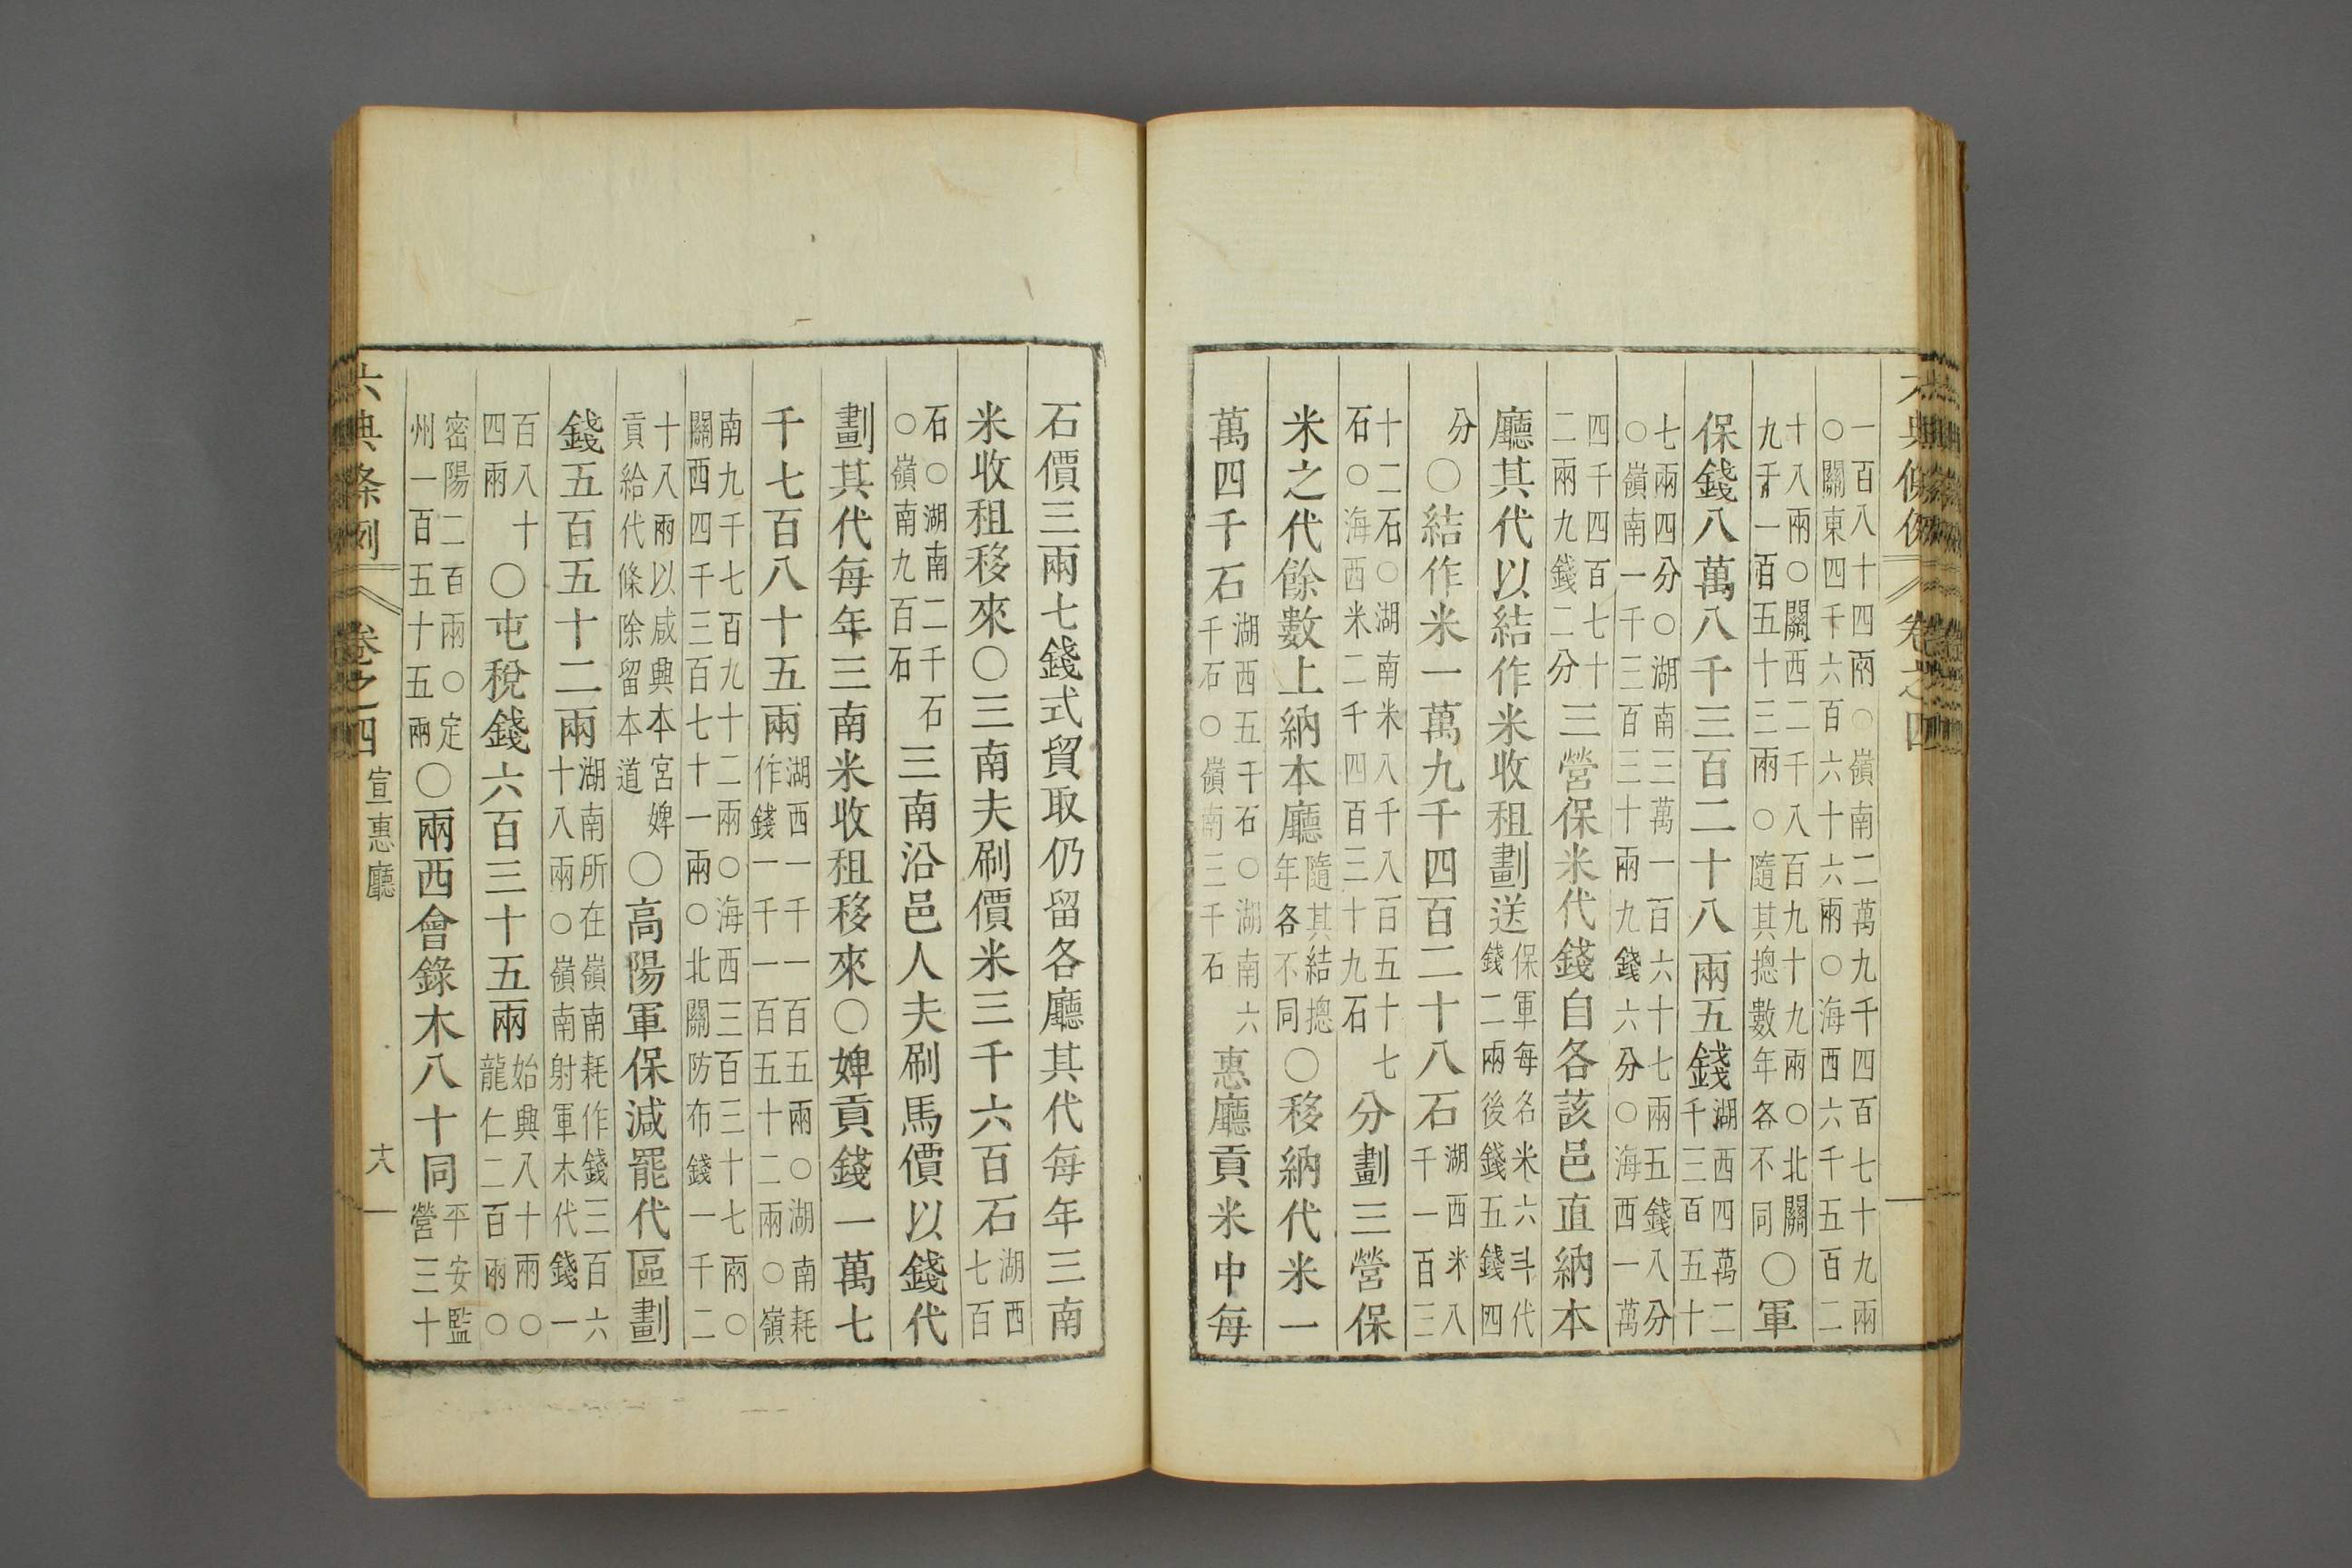 六典條例 卷之四
一百八十四兩○嶺南二萬九千四百七十九兩
○關東四千六百六十六兩○海西六千五百二
十八兩○關西二千八百九十九兩○北關
九千一百五十三兩○隨其摠數年各不同
○軍
保錢八萬八千三百二十八兩五錢
湖西四萬二
千三百五十
七兩四分○湖南三萬一百六十七兩五錢八分
○嶺南一千三百三十兩九錢六分○海西一萬
四千四百七十
二兩九錢二分
三營保米代錢自各該邑直納本
廳其代以結作米收租劃送
保軍每名米六斗代
錢二兩後錢五錢四
分
○結作米一萬九千四百二十八石
湖西米八
千一百三
十二石○湖南米八千八百五十七
石○海西米二千四百三十九石
分劃三營保
米之代餘數上納本廳
隨其結摠
年各不同
○移納代米一
萬四千石
湖西五千石○湖南六
千石○嶺南三千石
惠廳貢米中每
石價三兩七錢式貿取仍留各廳其代每年三南
米收租移來○三南夫刷價米三千六百石
湖西
七百
石○湖南二千石
○嶺南九百石
三南沿邑人夫刷馬價以錢代
劃其代每年三南米收租移來○婢貢錢一萬七
千七百八十五兩
湖西一千一百五兩○湖南耗
作錢一千一百五十二兩○嶺
南九千七百九十二兩○海西三百三十七兩○
關西四千三百七十一兩○北關防布錢一千二
十八兩以咸興本宮婢
貢給代條除留本道
○高陽軍保減罷代區劃
錢五百五十二兩
湖南所在嶺南耗作錢三百六
十八兩○嶺南射軍木代錢一
百八十
四兩
○屯稅錢六百三十五兩
始興八十兩○
龍仁二百兩○
密陽二百兩○定
州一百五十五兩
○兩西會錄木八十同
平安監
營三十
六典條例 卷之四 宣惠廳 十八